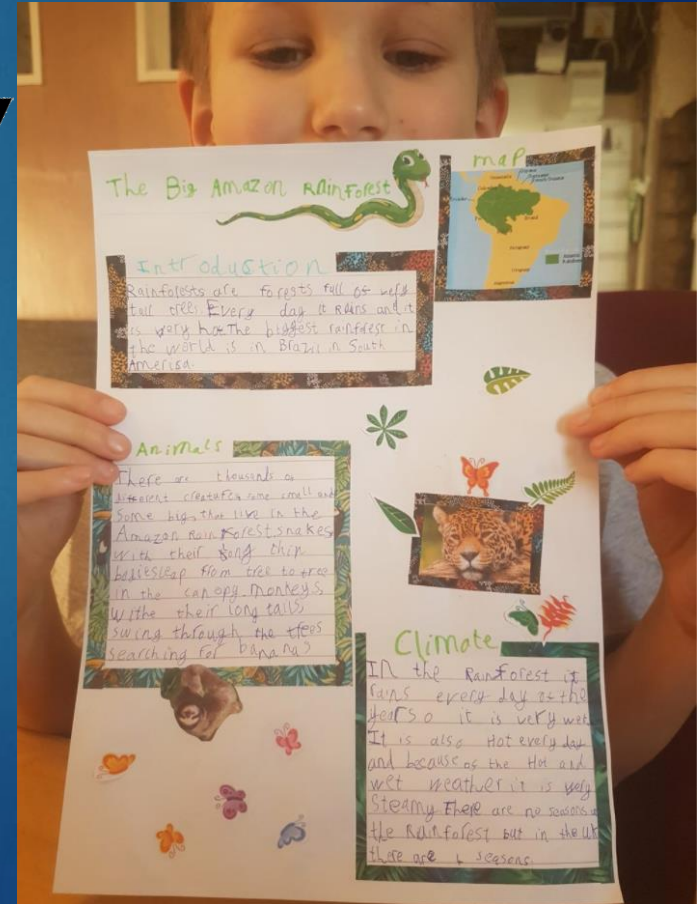 The Big Amazon Rainforest
map
Introduction
Rainforests are forests full of very
tall trees Every day it Rains and it
is very hot The biggest rainforest in
the world is in Brazil in South
Amerisa.
Animals
There are thousands of
different creatures some small and
some big that live in the
Amazon Rain Forest snakes
with their long thin
leap from tree to tree
in the canopy monkeys,
withe their long tails
swing through the trees
searching for bananas
Climate
IN the Rainforest it
rains every day of the
year so it is very wet
It is also Hot every day
and because of the Hot and
wet weather it is very
Steamy There are no seasons
the Rainforest but in the UK
there are 4 seasons.